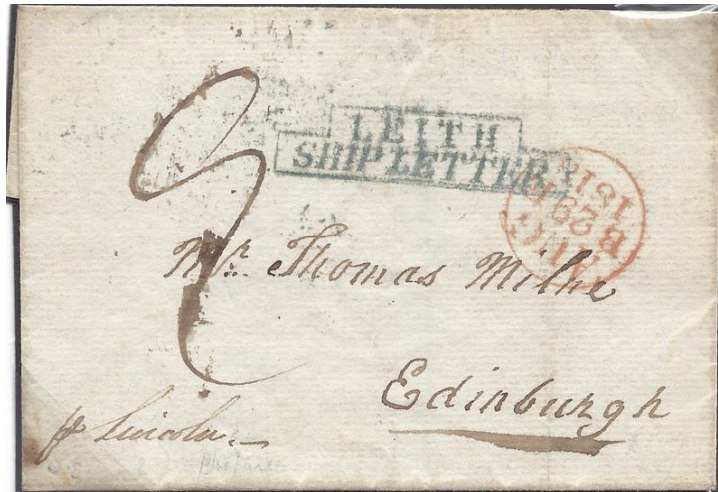 LEITH
SHIP LETTER
AUG
B 29
Mr. Thomas Milne
Edinburgh
p Lincoln